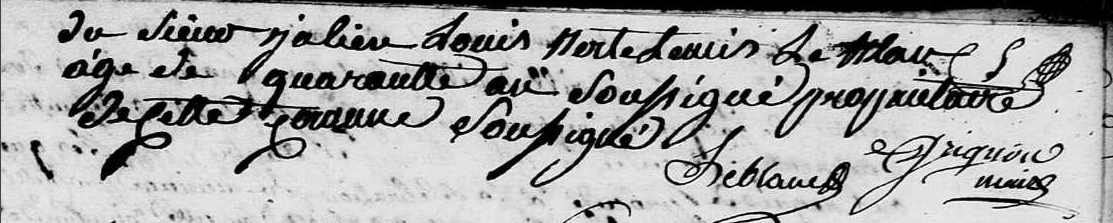 du Sieur julien Louis Le blanc
âgé de quarantte an Soussigué propriaitaire
de Cette Commune Soussigué
Leblanc Grignon
maire